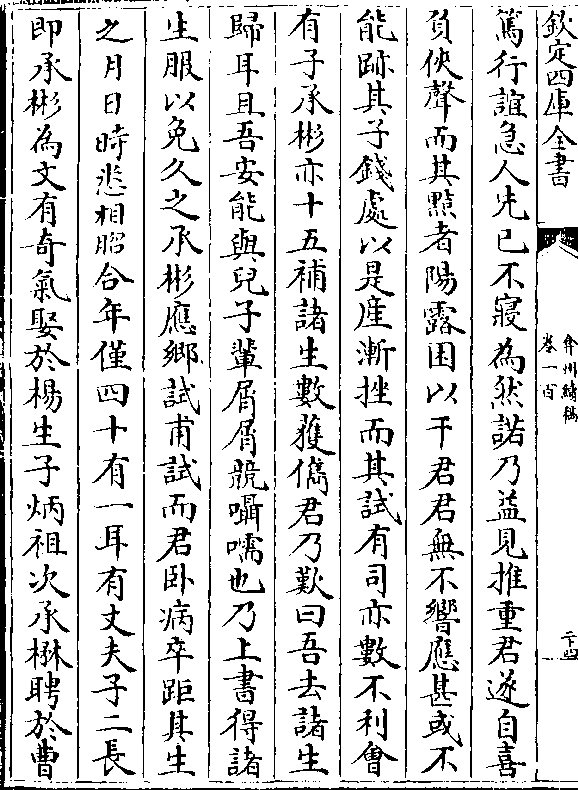 欽定四庫全書
弇州續稿
卷一百
二十四
篤行誼急人先已不寢為然諾乃益見推重君遂自喜
負俠聲而其黠者陽露困以干君君無不響應甚或不
能跡其子錢處以是産漸挫而其試有司亦數不利會
有子承彬亦十五補諸生數獲儁君乃歎曰吾去諸生
歸耳且吾安能與兒子輩屑屑競囁嚅也乃上書得諸
生服以免久之承彬應鄉試甫試而君卧病卒距其生
之月日時悉相胎合年僅四十有一耳有丈夫子二長
即承彬為文有奇氣娶於楊生子炳祖次承楙聘於曹